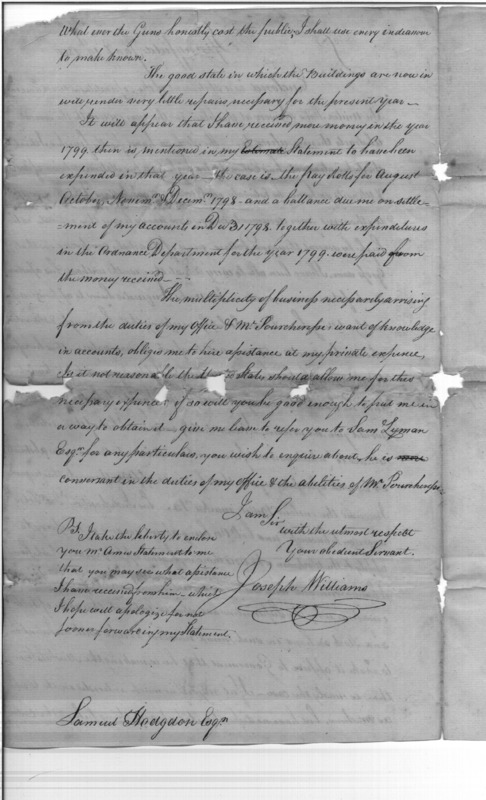 What ever the Guns honestly cost the public, I shall use every endeavour
to make known.
The good state in which the Buildings are now in
will render very little repairs necessary for the present Year —
It will appear that I have received more money in the year
1799 then is mentioned in my Estimate Statement to have been
expended in that year — the case is the Pay Rolls for August
October, Novemr & Decemr 1798 — and a ballance due me on settle-
-ment of my accounts in Decr 31 1798. together with expenditures
in the Ordnance Department for the year 1799. were paid from
the money received —
The multiplicity of business necessarily arising
from the duties of my Office & Mr Pourcheresse want of knowledge
in accounts, obliges me to hire assistance at my private expence,
Is it not reasonable that States should allow me for this
necessary expence if so will you be good enough to put me in
a way to obtain it — give me leave to refer you to Saml Lyman
Esqr for any particulars, you wish to enquire about, he is
conversant in the duties of my Office & the abilities of Mr Pourcheresse
I am Sir
with the utmost respect
Your obedient Servant.
Joseph Williams
P.S. I take the liberty to enclose
you Mr Ames Statement to me
that you may see what assistance
I have received from him — which
I hope will apologize for not
sooner forwarding my Statement.
Samuel Hodgdon Esqr